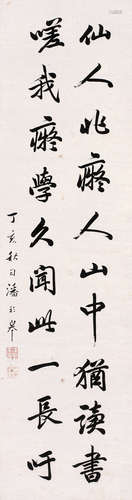 仙人非癡人山中猶讀書
嗟我癈學久聞此一長吁
丁亥秋日潘齡皋